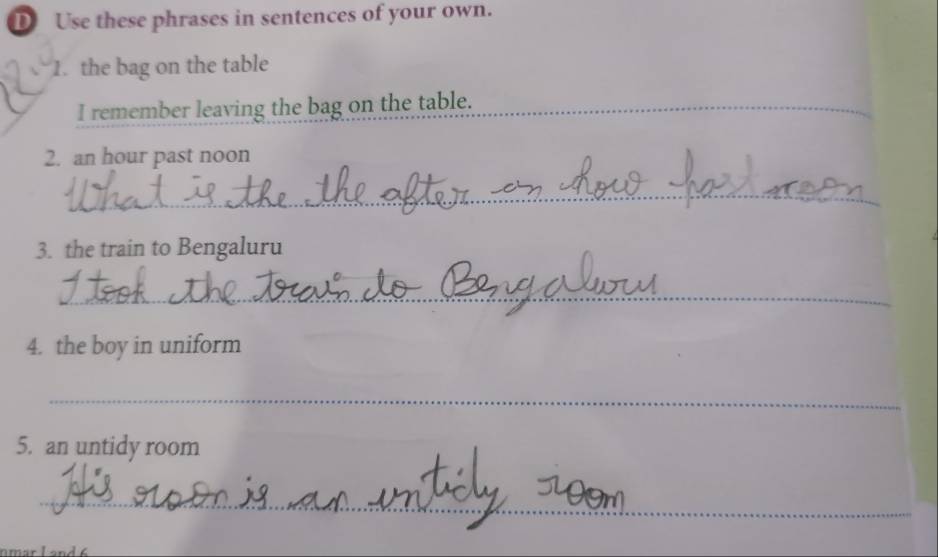 D Use these phrases in sentences of your own.
1. the bag on the table
I remember leaving the bag on the table.
2. an hour past noon
What is the the after an how past noon
3. the train to Bengaluru
I took the train to Bengaluru
4. the boy in uniform
5. an untidy room
His room is an untidy room